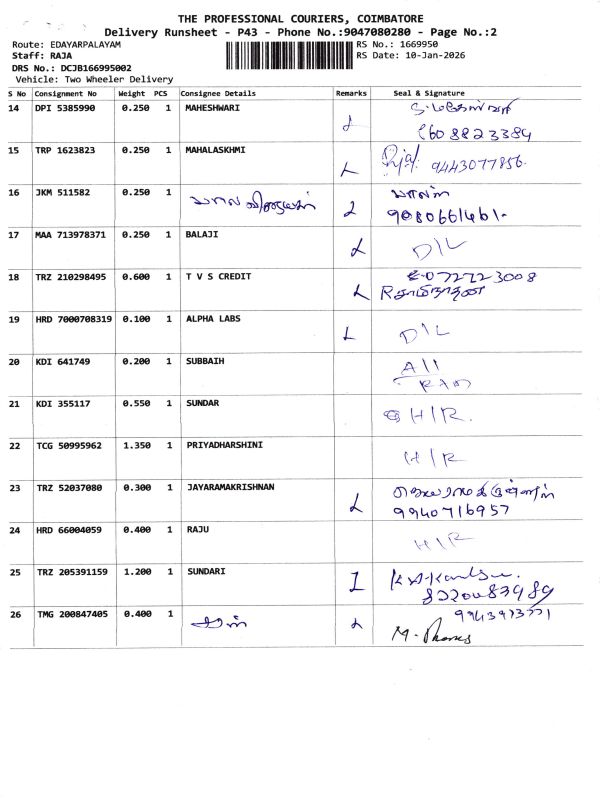 THE PROFESSIONAL COURIERS, COIMBATORE
Delivery Runsheet - P43 - Phone No.:9047080280 - Page No.:2
Route: EDAYARPALAYAM
Staff: RAJA
DRS No.: DCJB166995002
Vehicle: Two Wheeler Delivery
RS No.: 1669950
RS Date: 10-Jan-2026
S No Consignment No Weight PCS Consignee Details Remarks Seal & Signature
14 DPI 5385990 0.250 1 MAHESHWARI
15 TRP 1623823 0.250 1 MAHALASKHMI 9443077856
16 JKM 511582 0.250 1 9080661461.
17 MAA 713978371 0.250 1 BALAJI D/L
18 TRZ 210298495 0.600 1 T V S CREDIT
19 HRD 7000708319 0.100 1 ALPHA LABS D/L
20 KDI 641749 0.200 1 SUBBAIH
21 KDI 355117 0.550 1 SUNDAR H/R.
22 TCG 50995962 1.350 1 PRIYADHARSHINI H/R
23 TRZ 52037080 0.300 1 JAYARAMAKRISHNAN
9940716957
24 HRD 66004059 0.400 1 RAJU H/R
25 TRZ 205391159 1.200 1 SUNDARI
26 TMG 200847405 0.400 1